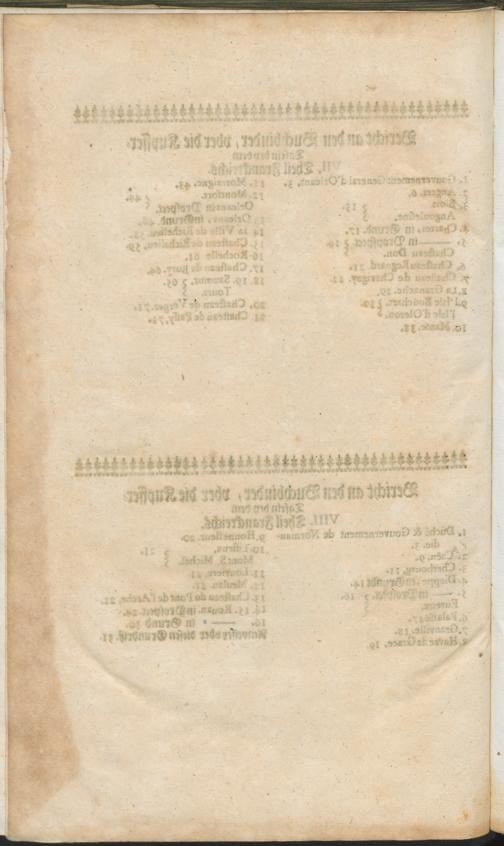 Bericht an den Buchbinder, über die Kupffer
VII. Theil Franckreichs.
1. Gouvernement General d'Orleant. 3.
2. Angers. 6
3. Blois. } 13
Angoulesme,
4. Chartres, in Grund. 17.
5. — in Prospect. } 19
Chasteau Don.
6. Chasteau Regnard. 21.
7. Chasteau de Chavigny. 22
8. La Granache. 29.
9. l'Isle Bouchart. } 30
l'Isle d'Oleron.
10. Manse. 38.
11. Montaigne. 43.
12. Montfort. } 44
Orleans in Prospect.
13. Orleans, in Grund. 46.
14. la Ville de Richelieu, 58.
15. Chasteau de Richelieu, 59
16. Rochelle 61.
17. Chasteau de Bury. 64.
18. 19. Saumur. } 65
Tours.
20. Chasteau de Verger. 71.
21. Chasteau de Passy, 72.
Bericht an den Buchbinder, über die Kupffer
VIII. Theil Franckreichs.
1. Duché & Gouvernement de Normandie. 3
2. Caën. 9.
3. Cherbourg, 11.
4. Dieppe in Grundt 14.
5. — in Prospect. } 16.
Evreux.
6. Falaise 17.
7. Granville. 18.
8. Havre de Grace, 19.
9. Honnefleur. 20
10. Lisieux, } 21.
Mont S. Michel.
11. Louviers. 22
12. Meulan. 23.
13. Chasteau du Pont de l'Arche, 25.
14. 15. Rouan. in Prospect. 24.
16. — in Grund 30